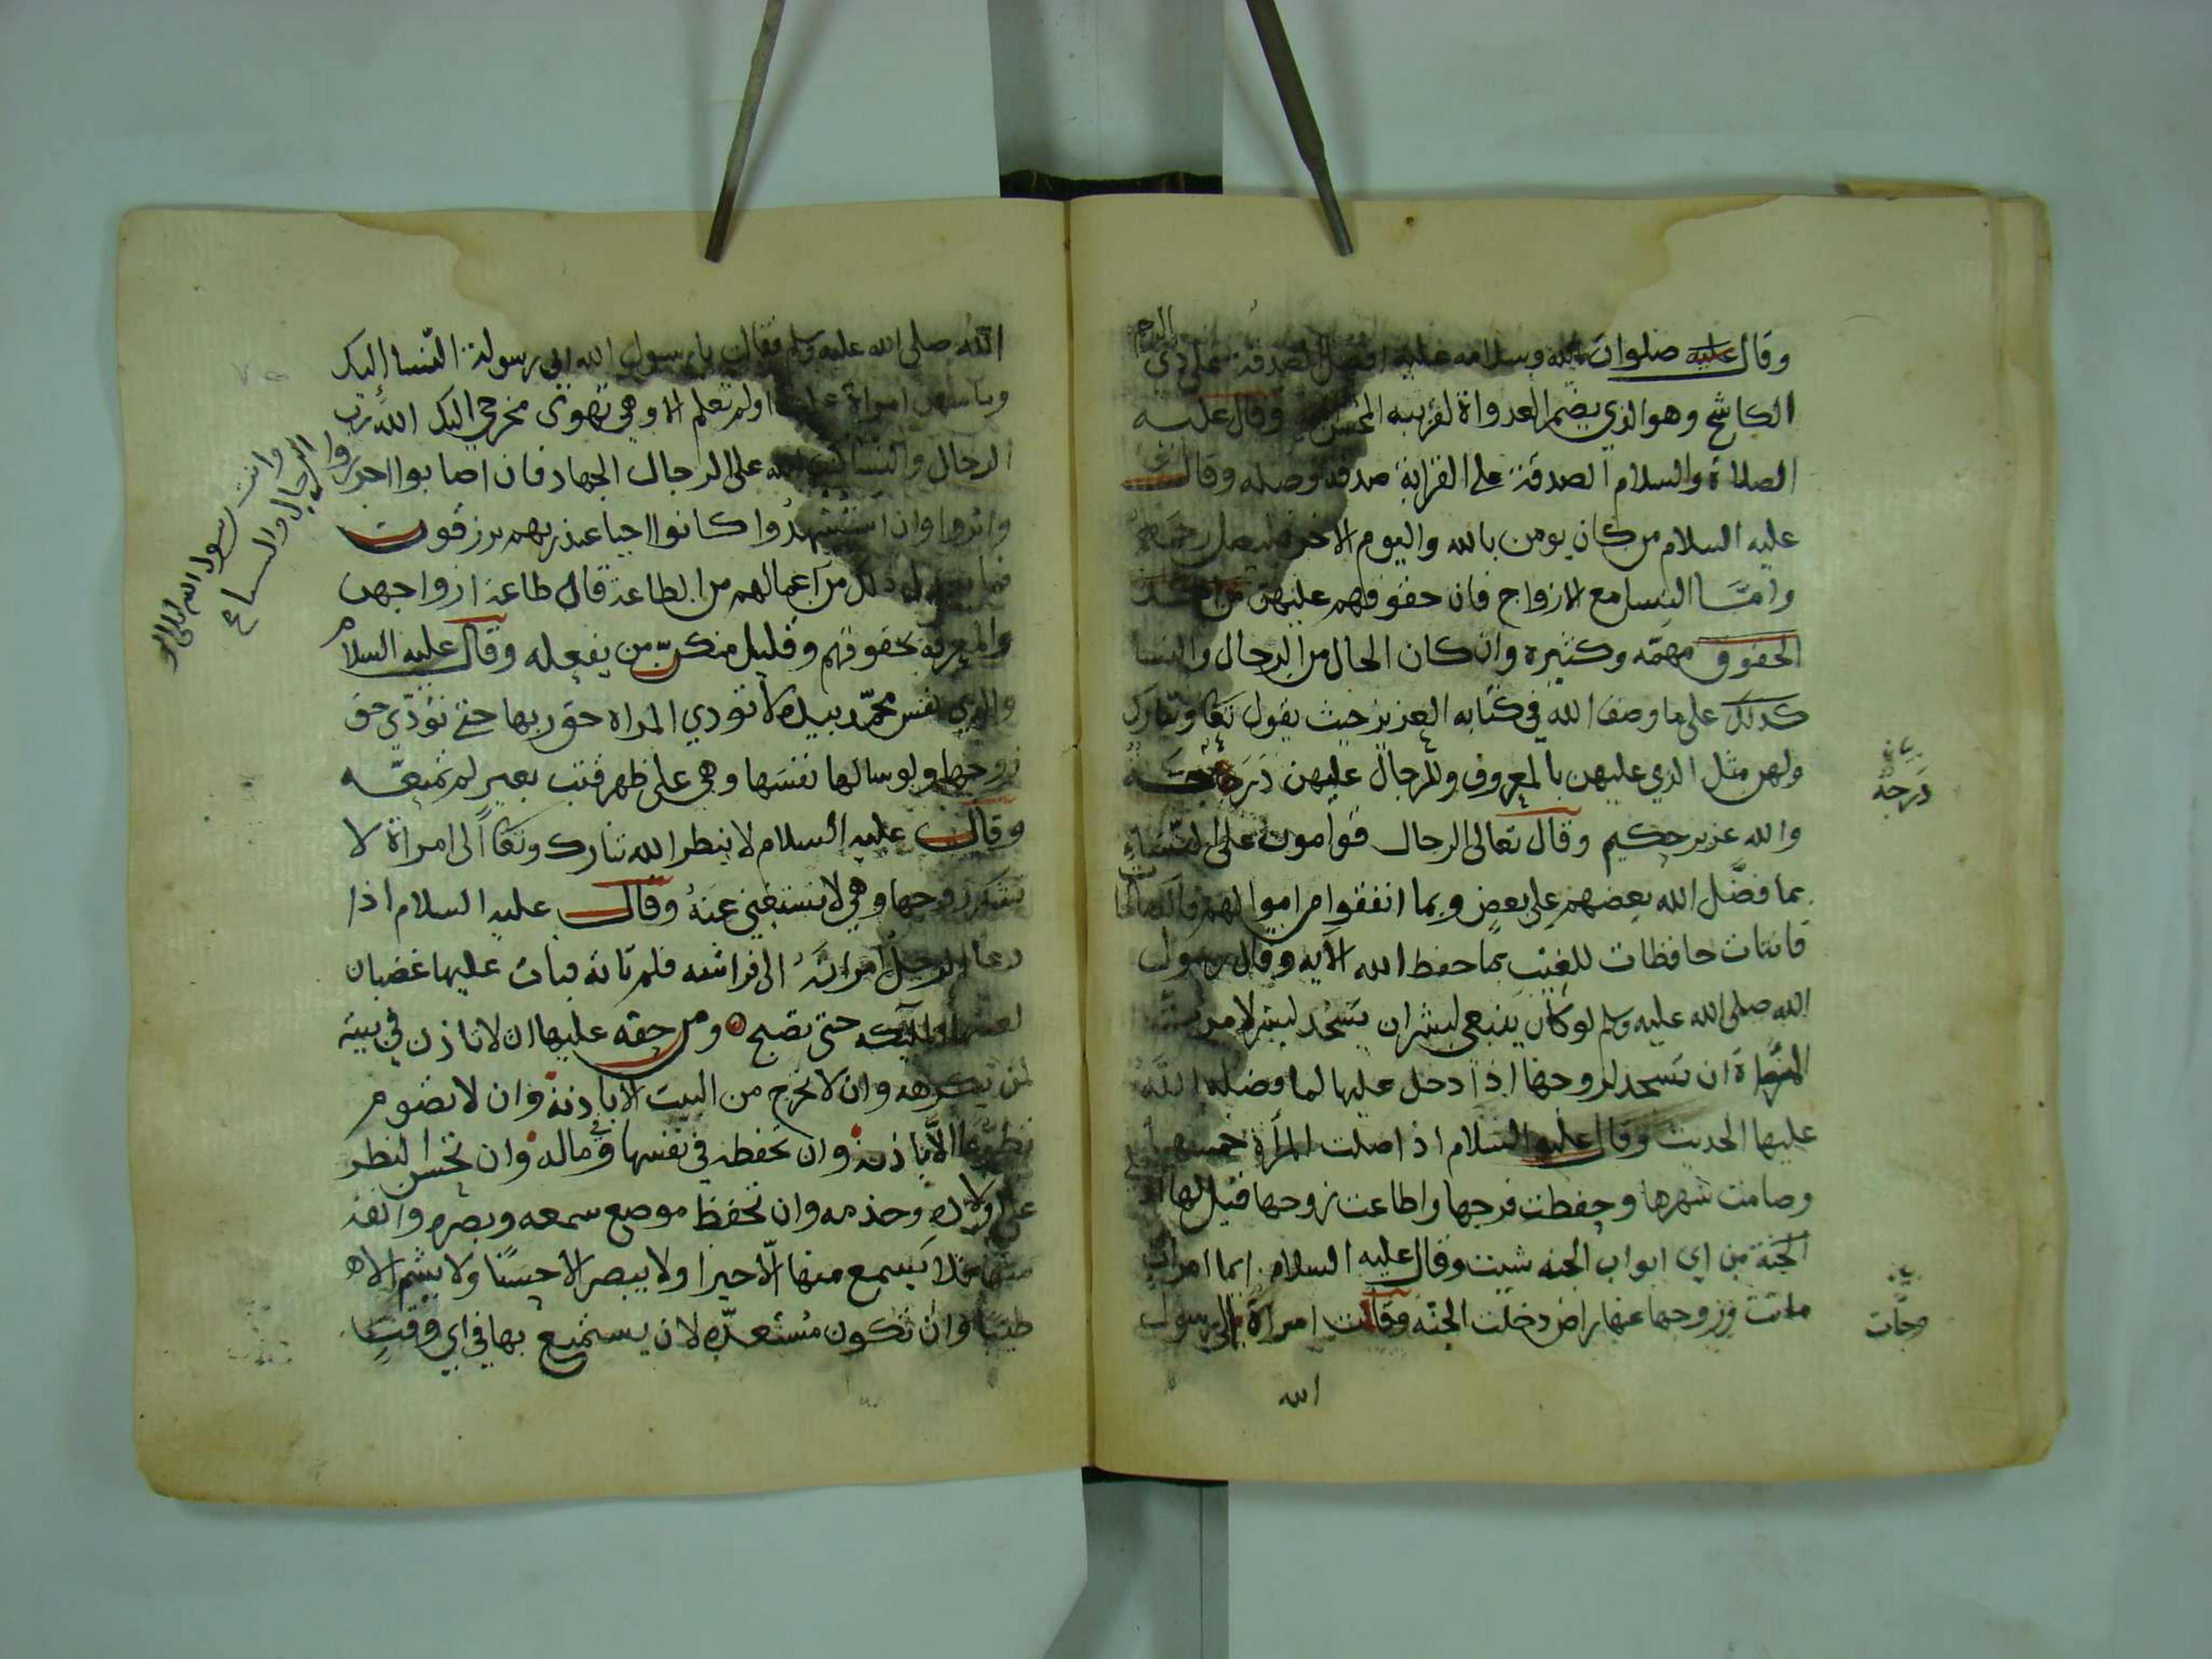 وقال عليه صلوات الله وسلامه عليه افضل الصدقة على ذي الرحم
الكاشح وهو الذي يضمر العدواة لقريبه وقال عليه
الصلاة والسلام الصدقة على القرابة صدقه وصله وقال
عليه السلام من كان يومن بالله واليوم الاخر فليصل رحمه
وامّا النسا مع الازواج فان حقوقهم عليهن
الحقوق مهمّه وكثيره وان كان الحال من الرجال والنسا
كذلك على ما وصف الله في كتابه العزيز حيث يقول تعا وتبارك
ولهن مثل الذي عليهن بالمعروف وللرجال عليهن دَرَجَة
والله عزيز حكيم وقال تعالى الرجال قوامون على النّسَاءِ
بما فضّل الله بعضهم على بعض وبما انفقوا من اموالهم فالصالحا
قانتات حافظات للغيب بما حفظ الله الآيه وقال رسول
الله صلى الله عليه وسلم لو كان ينبغي لبشر ان يَسْجُد لبشر لامرتُ
المَرْاة ان تسجد لزوجها اذا دخل عليها لما فضله الله
عليها الحديث وقال عليه السّلام اذا صلت المرأة خمسها
وصامت شهرها وحفظت فرجها واطاعت زوجها قيل لها
الجَنّة من اي ابواب الجنه شيت وقال عليه السلام ايما امراة
ماتت وزوجها عنها راض دخلت الجنّه وقالت امراة الى رسول
الله
بيان
دَرَجَة
وجات
الله صلى الله عليه وسلم فقالت يا رسول الله اني رسولة النّسا إليك
وما منهن امراة علمت او لم تعلم الا وهي تهوى مخرجي اليك الله رَب
الرجال والنسا كتب الله على الرجال الجهاد فان اصابوا اجروا
واثروا وان استُشهِدُوا كانوا احيا عند ربهم يرزقون
فما يعدل ذلك من اعمالهم من الطاعة قال طاعة ازواجهن
والمعرفة بحقوقهم وقليل منكنّ من يفعله وقال عليه السلام
والذي نفس محمّد بيده لا تودي المراه حق ربها حتى تؤدّي حق
زوجها ولو سالها نفسَها وهي على ظهر قتب بعير لم تمنعه
وقال عليه السلام لا ينظر الله تبارك وتعا الى امراة لا
تشكر زوجها وهي لا تستغني عنهُ وقال عليه السلام اذا
دعا الرجل امراتهُ الى فراشه فلم تاته فبات عليها غضبان
لعنتها الملئكه حتى تصبح ومن حقه عليها ان لا تاذن في بيته
لمن يكرهه وان لا تخرج من البيت الا باذنه وان لا تصوم
تطوّعا الّا باذنه وان تحفظه في نفسها وفي ماله وان تحسن النظر
على ولاده وخدمه وان تحفظ موضع سمعه وبصره وانفه
منها فلا يسمع منها الّا خيرا ولا يبصر الا حسَنًا ولا يشم الا
طيبًا وان تكون مُسْتعدّه لان يستمتع بها في اي وقتٍ
وانت رسول الله الى
الرجال والنساء